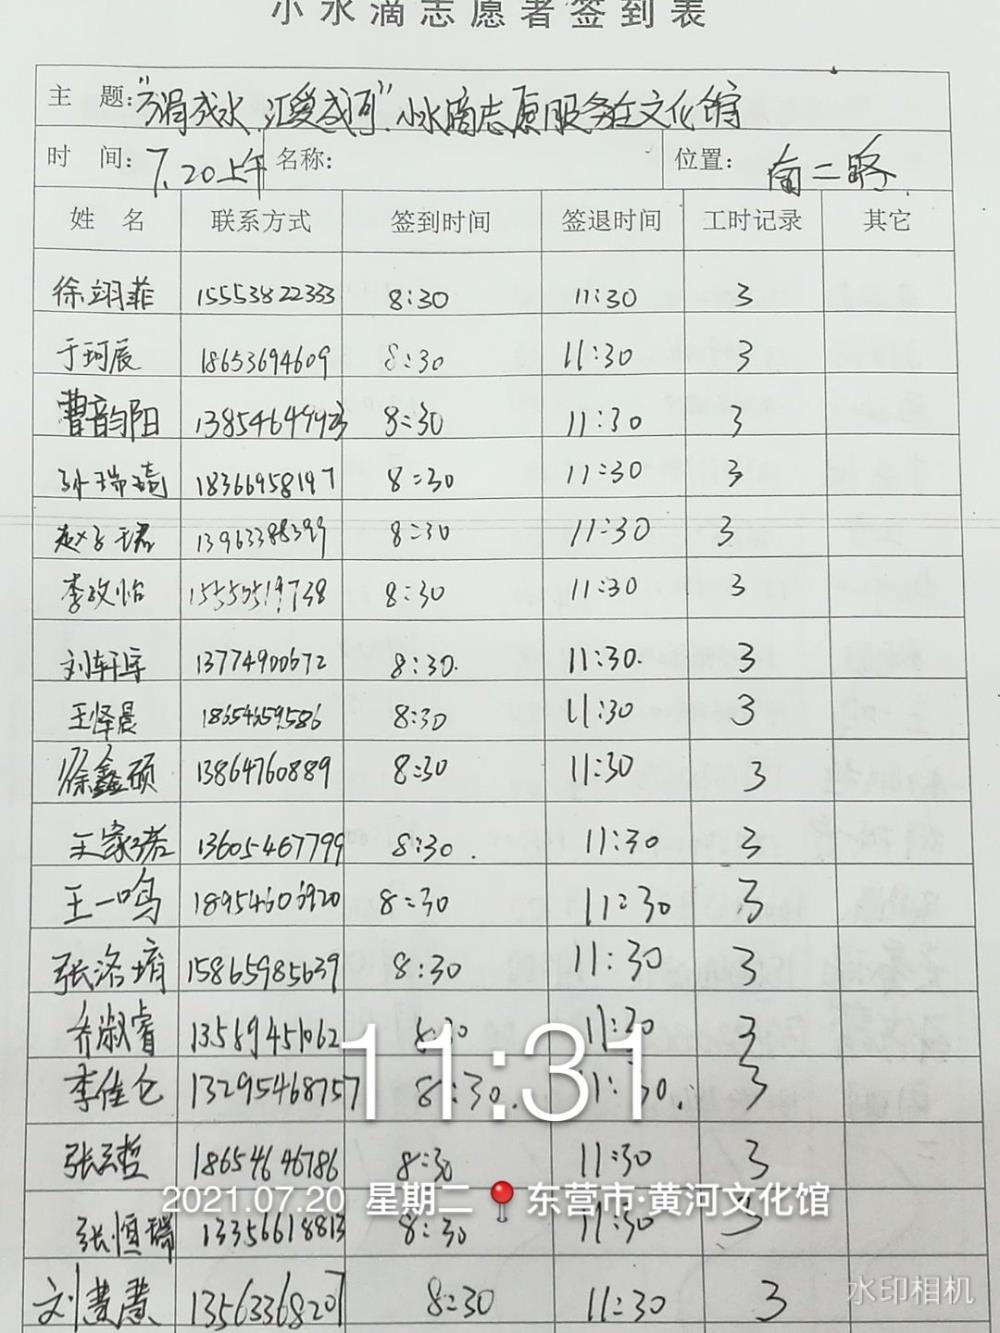 小水滴志愿者签到表
主 题:“涓成水,汇爱成河”小水滴志愿服务在文化馆
时 间: 7.20上午 名称: 位置: 南二路.
姓 名 联系方式 签到时间 签退时间 工时记录 其它
徐翊菲 15553822333 8:30 11:30 3
于珂辰 18653694609 8:30 11:30 3
曹韵阳 8:30 11:30 3
孙瑞琦 18366958197 8:30 11:30 3
赵子君 13963388399 8:30 11:30 3
李玫怡 15550519738 8:30 11:30 3
刘轩宇 13774900672 8:30. 11:30. 3
王怿晨 18654659586 8:30 11:30 3
徐鑫硕 13864760889 8:30 11:30 3
王家珺 13605467799 8:30. 11:30 3
王一鸣 18954606920 8:30 11:30 3
张洛堉 15865985639 8:30 11:30 3
乔淑睿 13589451062 8:30 11:30 3
李佳仑 13295468757 8:30. 11:30. 3
11:31
张云哲 18654646786 8:30 11:30 3
2021.07.20 星期二 东营市·黄河文化馆
张恒瑞 13356618813 8:30 11:30 3
刘慧慧 13563368207 8:30 11:30 3
水印相机